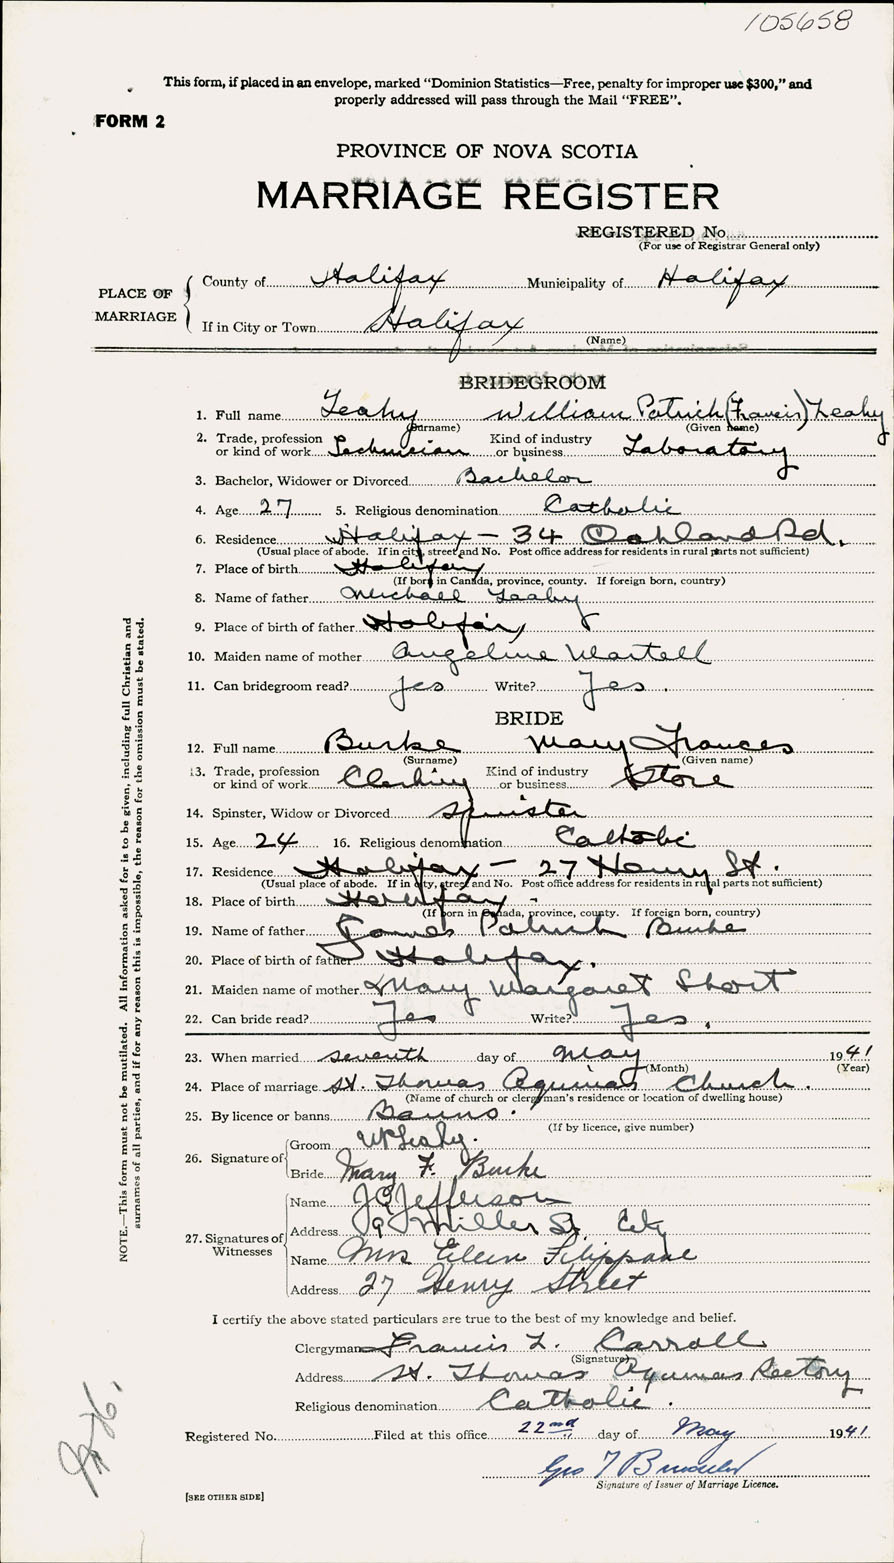 105658
This form, if placed in an envelope, marked "Dominion Statistics—Free, penalty for improper use $300," and
properly addressed will pass through the Mail "FREE".
FORM 2
PROVINCE OF NOVA SCOTIA
MARRIAGE REGISTER
REGISTERED No.
(For use of Registrar General only)
PLACE OF MARRIAGE
County of Halifax Municipality of Halifax
If in City or Town Halifax
(Name)
BRIDEGROOM
1. Full name Leahy William Patrick (Francis) Leahy
(Surname) (Given name)
2. Trade, profession or kind of work Technician Kind of industry or business Laboratory
3. Bachelor, Widower or Divorced Bachelor
4. Age 27 5. Religious denomination Catholic
6. Residence Halifax — 34 Oakland Rd.
(Usual place of abode. If in city, street and No. Post office address for residents in rural parts not sufficient)
7. Place of birth Halifax
(If born in Canada, province, county. If foreign born, country)
8. Name of father Michael Leahy
9. Place of birth of father Halifax
10. Maiden name of mother Angeline Martell
11. Can bridegroom read? Yes Write? Yes.
BRIDE
12. Full name Burke Mary Frances
(Surname) (Given name)
13. Trade, profession or kind of work Clerking Kind of industry or business Store
14. Spinster, Widow or Divorced Spinster
15. Age 24 16. Religious denomination Catholic
17. Residence Halifax — 27 Henry St.
(Usual place of abode. If in city, street and No. Post office address for residents in rural parts not sufficient)
18. Place of birth Halifax
(If born in Canada, province, county. If foreign born, country)
19. Name of father James Patrick Burke
20. Place of birth of father Halifax.
21. Maiden name of mother Mary Margaret Short
22. Can bride read? Yes Write? Yes.
23. When married seventh day of May 1941
(Month) (Year)
24. Place of marriage St. Thomas Aquinas Church.
(Name of church or clergyman's residence or location of dwelling house)
25. By licence or banns Banns.
(If by licence, give number)
26. Signature of
Groom W P Leahy.
Bride Mary F. Burke
27. Signatures of Witnesses
Name J Jefferson
Address 9 Miller St. City
Name Mrs Eileen Filippone
Address 27 Henry Street
I certify the above stated particulars are true to the best of my knowledge and belief.
Clergyman Francis L. Carroll
(Signature)
Address St. Thomas Aquinas Rectory
Religious denomination Catholic.
Registered No. Filed at this office 22nd day of May 1941
Geo T
Signature of Issuer of Marriage Licence.
[SEE OTHER SIDE]
NOTE.—This form must not be mutilated. All information asked for is to be given, including full Christian and
surnames of all parties, and if for any reason this is impossible, the reason for the omission must be stated.